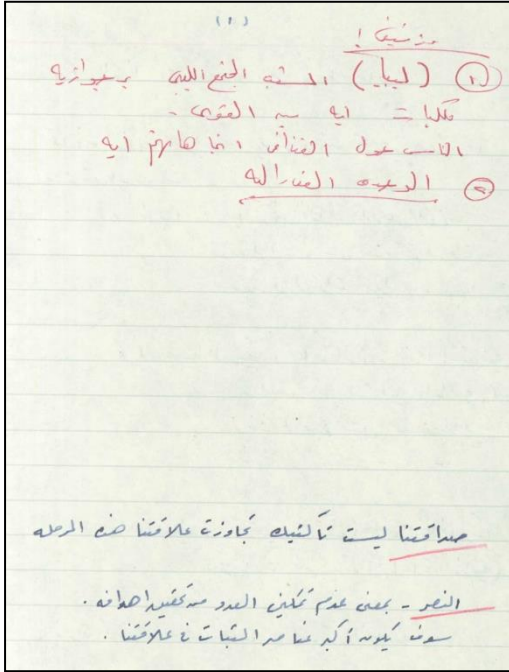 (١)
بودنى !
(١) (ليبيا) المجتمع الليبى برجوازيه
ايه بين القوى -
الناس حول القذافى اتجاهاتهم ايه
(٢) الوحده الفدراليه
صداقتنا ليست تاكتيك تجاوزت علاقتنا هذه المرحله
النصر - بمعنى عدم تمكين العدو من تحقيق اهدافه .
سوف يكون أكبر عناصر الثبات فى علاقتنا .